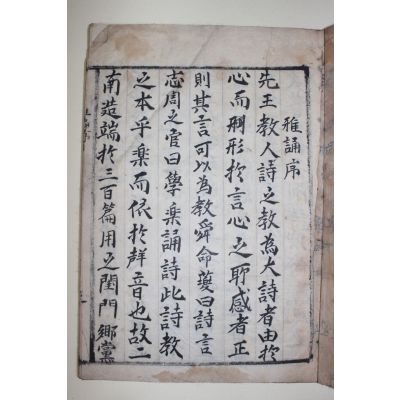 雅誦序
先王教人詩之教為大詩者由於
心而形於言心之所感者正
則其言可以為教舜命夔曰詩言
志周之官曰學樂誦詩此詩教
之本乎樂而依於群音也故二
南造端於三百篇用之閨門鄉黨